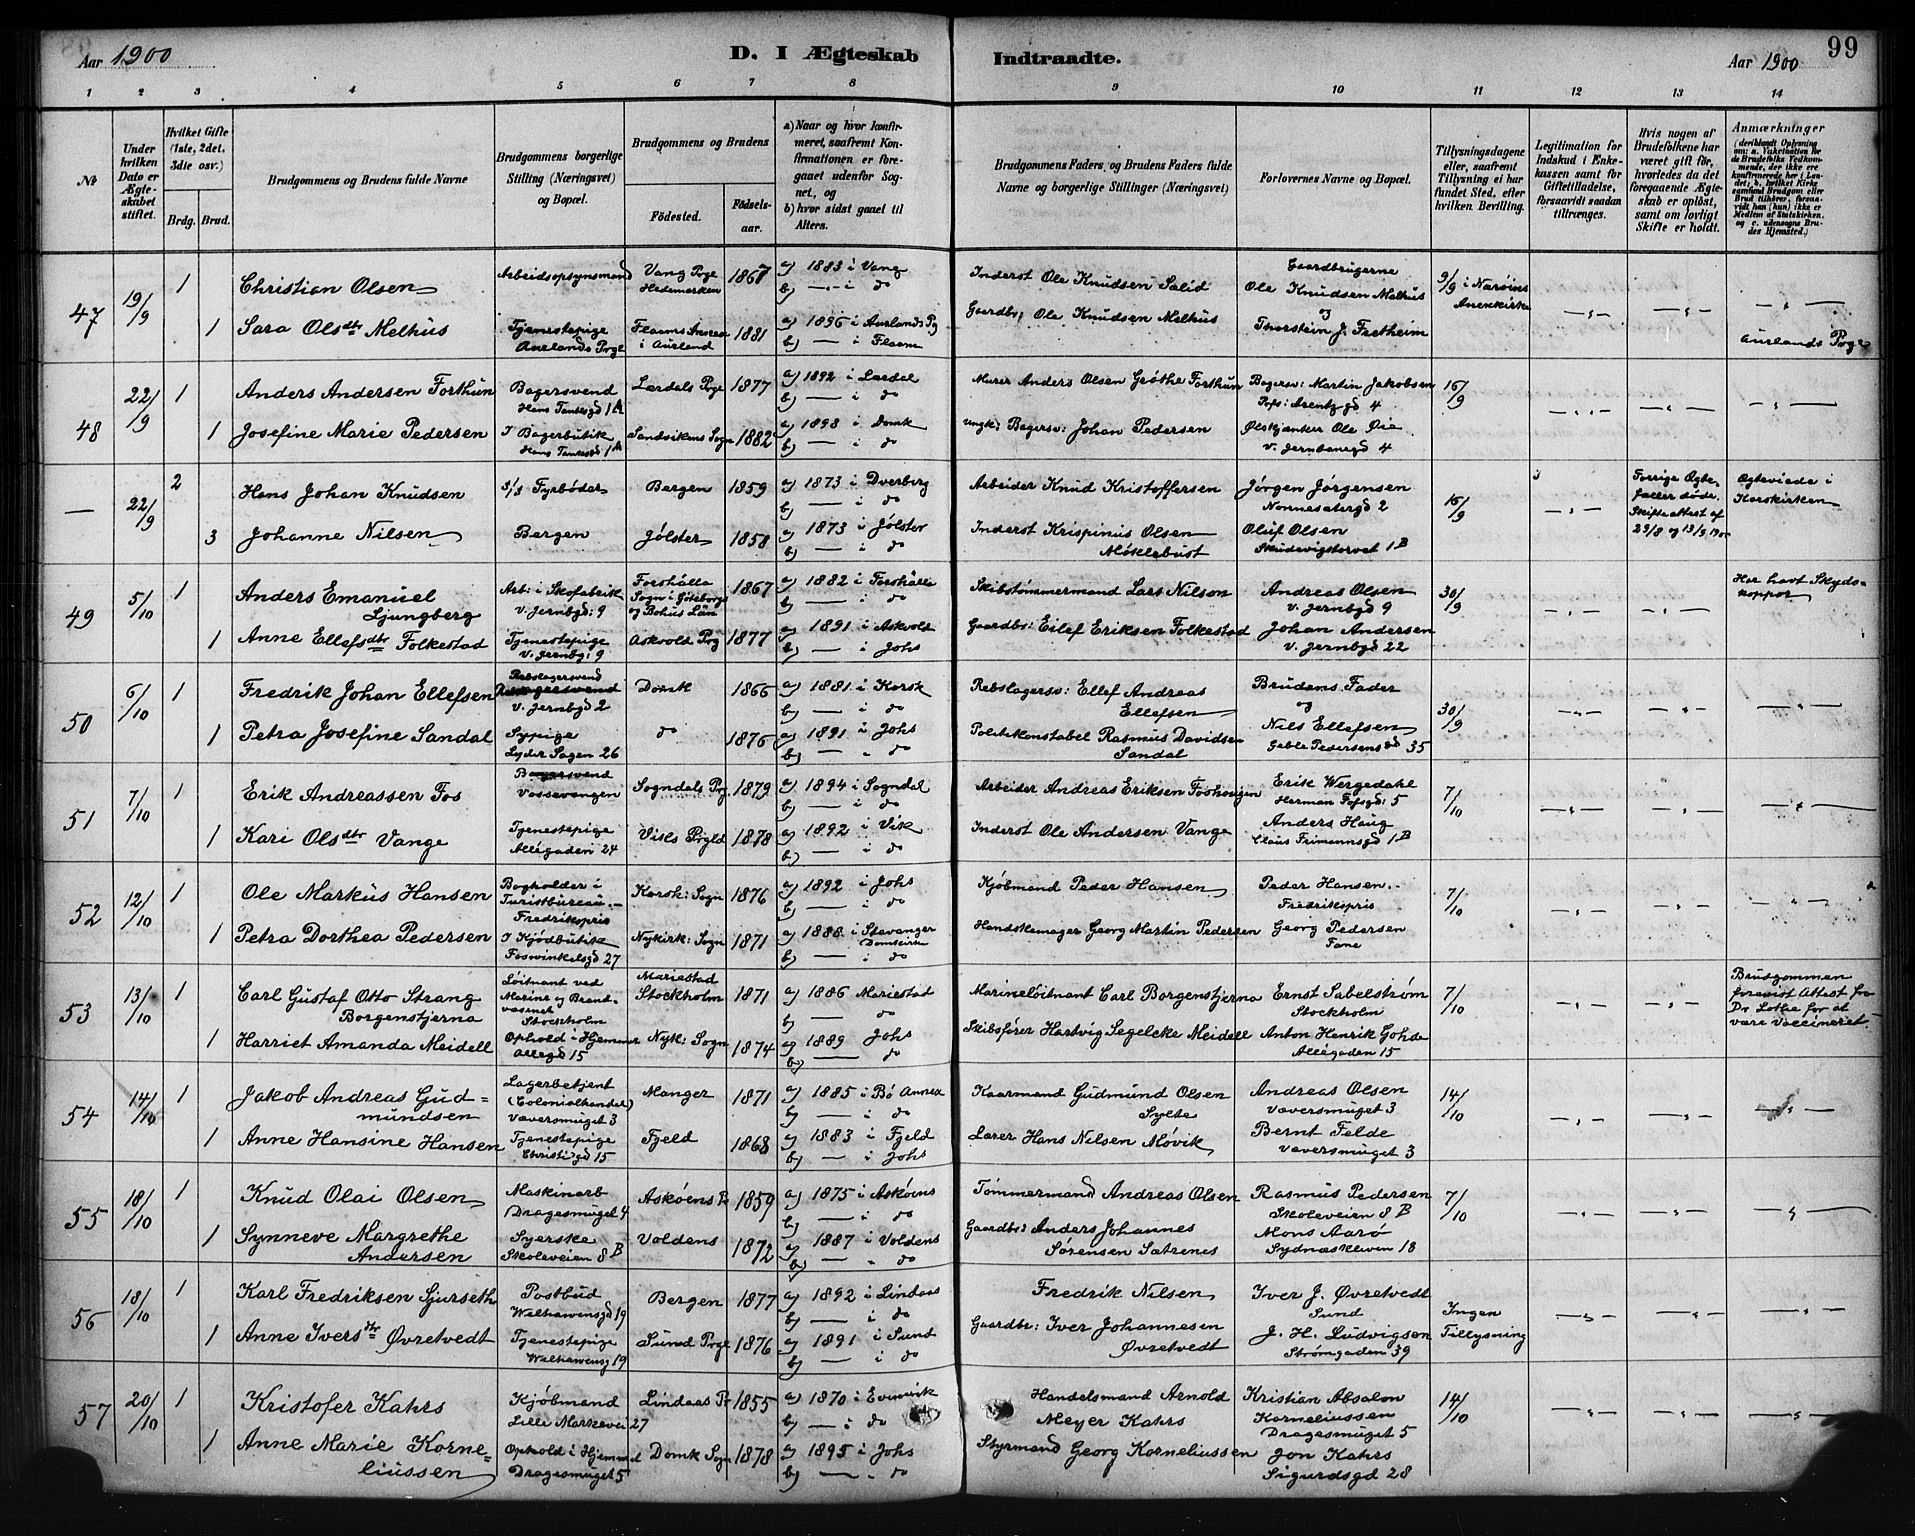 Aar 1900
D. I Ægteskab
Indtraadte.
Aar 1900
99
1 2 3 4 5 6 7 8 9 10 11 12 13 14
№
Under hvilken Dato er Ægteskabet stiftet.
Hvilket Gifte (1ste, 2det, 3die osv.)
Brdg. Brud.
Brudgommens og Brudens fulde Navne
Brudgommens borgerlige Stilling (Næringsvei) og Bopæl.
Brudgommens og Brudens
Fødested.
Fødselsaar.
a) Naar og hvor konfirmeret, saafremt Konfirmationen er foregaaet udenfor Sognet, og
b) hvor sidst gaaet til Alters.
Brudgommens Faders og Brudens Faders fulde Navne og borgerlige Stillinger (Næringsvei)
Forlovernes Navne og Bopæl.
Tillysningsdagene eller, saafremt Tillysning ei har fundet Sted, efter hvilken Bevilling.
Legitimation for Indskud i Enkekassen samt for Giftetilladelse, forsaavidt saadan tiltrænges.
Hvis nogen af Brudefolkene har været gift før, hvorledes da det foregaaende Ægteskab er opløst, samt om lovligt Skifte er holdt.
Anmærkninger (deriblandt Oplysning om: a. Vakcination for de Brudefolks Vedkommende, der ikke ere konfirmerede her i Landet; b. hvilket Kirkesamfund Brudgom eller Brud tilhører, forsaavidt han (hun) ikke er Medlem af Statskirken, og c. udensogns Brudes Hjemsted.)
47 19/9 1 Christian Olsen Arbeidsopsynsmand Vang Pge Hedemarken 1867 a) 1883 i Vang b) — i do Inderst Ole Knudsen Salid Gaardbrugerne Ole Knudsen Melhus og 9/9 i Narøins Anexkirke
1 Sara Olsdtr Melhus Tjenestepige Aurlands Pgl Flaams Annex i Aurland 1881 a) 1896 i Aurlands Pg b) — i Flaam Gaardbr: Ole Knudsen Melhus Thorstein J. Fretheim Aurlands Pge
48 22/9 1 Anders Andersen Forthun Bagersvend Hans Tanksgd 1A Lærdals Pge 1877 a) 1892 i Lærdal b) — i do Murer Anders Olsen Grøthe Forthun Bagersv: Martin Jakobsen Pofs: Arentzgd 4 16/9
1 Josefine Marie Pedersen I Bagerbutik Hans Tanksgd 1A Sandvikens Sogn 1882 a) 1898 i Domk b) — i do Ungk: Bagersv: Johan Pedersen Ølskjænker Ole Øie v. Jernbanegd 4
— 22/9 2 Hans Johan Knudsen s/s Fyrbøder Bergen 1859 a) 1873 i Dverberg b) — i do Arbeider Knud Kristoffersen Jørgen Jørgensen Nonnesætergd 2 16/9 Forrige Ægtefæller døde. Skifteattest af 23/8 og 13/9 1900 Ægteviede i Korskirken
3 Johanne Nilsen Bergen Jølster 1858 a) 1873 i Jølster b) — i do Inderst Krispinus Olsen Møklebust Oluf Olsen Skudevigstorvet 1B
49 5/10 1 Anders Emanuel Ljungberg Arb: i Skofabrik v. Jernbgd: 9 Forshälla Sogn i Gøteborgs og Bohus Län 1867 a) 1882 i Forshälla b) — i do Skibstømmermand Lars Nilson Andreas Olsen v. Jernbgd 9 30/9 Har havt Skydskopper
1 Anne Ellefsdtr Folkestad Tjenestepige v. Jernbg: 9 Askvold Pg 1877 a) 1891 i Askvold b) — i Johs Gaardbr: Eilef Eriksen Folkestad Johan Andersen v. Jernbgd 22
50 6/10 1 Fredrik Johan Ellefsen Rebslagersvend v. Jernbgd 2 Domk 1866 a) 1881 i Korsk b) — i do Rebslagersv: Ellef Andreas Ellefsen Brudens Fader og 30/9
1 Petra Josefine Sandal Sypige Lyder Sagen 26 do 1876 a) 1891 i Johs b) — „ do Politikonstabel Rasmus Davidsen Sandal Nils Ellefsen Gable Pedersensgd 35
51 7/10 1 Erik Andreassen Fos Bagersvend Vossevangen Sogndals Pg 1879 a) 1894 i Sogndal b) — i do Arbeider Andreas Eriksen Foshougen Erik Wergedahl Herman Fofsgd: 5 7/10
1 Kari Olsdtr Vange Tjenestepige Allégaden 24 Viks Prgld 1878 a) 1892 i Vik b) — i do Inderst Ole Andersen Vange Anders Haug Claus Frimannsgd 1B
52 12/10 1 Ole Markus Hansen Bogholder i Turistbureau. Fredrikspris Korsk: Sogn 1876 a) 1892 i Johs b) — i do Kjøbmand Peder Hansen Peder Hansen. Fredrikspris 7/10
1 Petra Dorthea Pedersen I Kjødbutik Foswinkelsgd 27 Nykirk: Sogn 1871 a) 1888 i Stavanger Domkirke b) — i do Handskemager Georg Martin Pedersen Georg Pedersen Fane
53 13/10 1 Carl Gustaf Otto Strang Borgenstjerna Løitnant ved Marine og Brandvæsenet Stockholm Mariestad Stockholm 1871 a) 1886 Mariestad b) — do Marineløitnant Carl Borgenstjerna Ernst Sabelstrøm Stockholm 7/10 Brudgommen forevist Attest fra Dr Lothe for at være Vaccineret
1 Harriet Amanda Meidell Ophold i Hjemmet Allegd 15 Nyk: Sogn 1874 a) 1889 Johs b) — do Skibsfører Hartvig Segelcke Meidell Anton Henrik Gohde Allégaden 15
54 14/10 1 Jakob Andreas Gudmundsen Lagerbetjent (Colonialhandel) Væversmuget 3 Manger 1871 a) 1885 i Bø Annex b) — i do Kaarmand Gudmund Olsen Sylte Andreas Olsen Væversmuget 3 14/10
1 Anne Hansine Hansen Tjenestepige Christigd 15 Fjeld 1868 a) 1883 i Fjeld b) — i Johs Lærer Hans Nilsen Møvik Bernt Felde Væversmuget 3
55 18/10 1 Knud Olai Olsen Maskinarb Dragesmuget 4 Askøens P 1859 a) 1875 i Askøens b) — i do Tømmermand Andreas Olsen Rasmus Pedersen Skoleveien 8B 7/10
1 Synneve Margrethe Andersen Syerske Skoleveien 8B Voldens 1872 a) 1887 i Voldens b) — „ do Gaardbr: Anders Johannes Sørensen Sætrenes Mons Aarø Sydnæskleiven 18
56 18/10 1 Karl Fredriksen Sjurseth Postbud Welhavensgd 19 Bergen 1877 a) 1892 i Lindaas b) — i do Fredrik Nilsen Iver J. Øvretvedt Sund Ingen Tillysning
1 Anne Iversdtr Øvretvedt Tjenestepige Welhavensg 19 Sund Pge 1876 a) 1891 i Sund b) — i do Gaardbr: Iver Johannesen Øvretvedt J. H. Ludvigsen Strømgaden 39
57 20/10 1 Kristofer Kahrs Kjøbmand Lille Markevei 27 Lindaas Pr 1855 a) 1870 i Evindvik b) — i do Handelsmand Arnold Meyer Kahrs Kristian Absalon Korneliussen Dragesmuget 5 14/10
1 Anne Marie Korneliussen Ophold i Hjemmet Dragesmuget 5 Domk Sogn 1878 a) 1895 i Johs b) — „ do Styrmand Georg Korneliussen Jon Kahrs Sigurdsgd 28